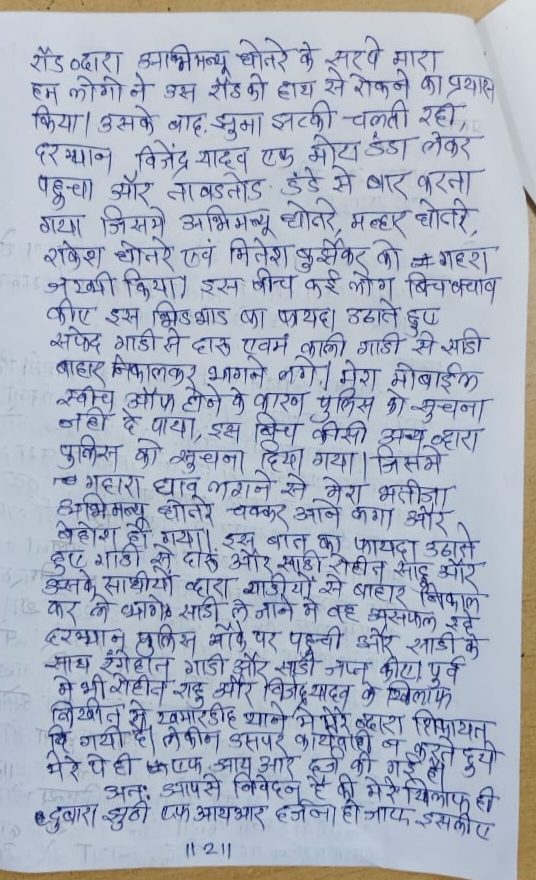 रॉड व्दारा अभिमन्यू धोतरे के सरपे मारा
हम लोगो ने उस रॉडको हाथ से रोकने का प्रयास
किया। उसके बाद झुमा झटकी चलती रही
दरम्यान विजेंद्र यादव एक मोटा डंडा लेकर
पहुचा और ताबडतोड डंडे से वार करता
गया जिसमे अभिमन्यू धोतरे, मल्हार धोतरे,
राकेश धोतरे एवं मितेश कुर्सेकर को गहरा
जख्मी किया। इस बीच कई लोग बिचबचाव
कीए इस भिडभाड का फायदा उठाते हुए
सफेद गाडी से दारू एवमं काली गाडी से साडी
बाहार निकालकर भागने लगे। मेरा मोबाईल
स्वीच ऑफ होने के कारन पुलिस को सुचना
नही दे पाया इस बिच कीसी अन्य व्दारा
पुलिस को सुचना दिया गया। जिसमे
गहारा घाव लगने से मेरा भतीजा
अभिमन्यू धोतरे चक्कर आने लगा और
बेहोश हो गया। इस बात का फायदा उठाते
हुए गाडी से दारू और साडी रोहीत साहू और
उसके साथीयों व्दारा गाडीयों से बाहार निकाल
कर ले भागे साडी ले जाने मे वह असफल रहे
दरम्यान पुलिस मौके पर पहुची और साडी के
साथ रंगेहात गाडी और साडी जप्त कीए। पुर्व
मे भी रोहीत साहु और विजेंद्र यादव के खिलाफ
लिखीत मे खमारडीह थाने मे मेरे व्दारा शिकायत
दि गयी है। लेकीन उसपर कार्यवाही न करते हुये
मेरे पे ही एफ आय आर दर्ज की गई है।
अतः आपसे निवेदन है की मेरे खिलाफ ही
दुबारा झुठी एफ आयआर दर्ज ना हो जाए इसलीए
॥2॥